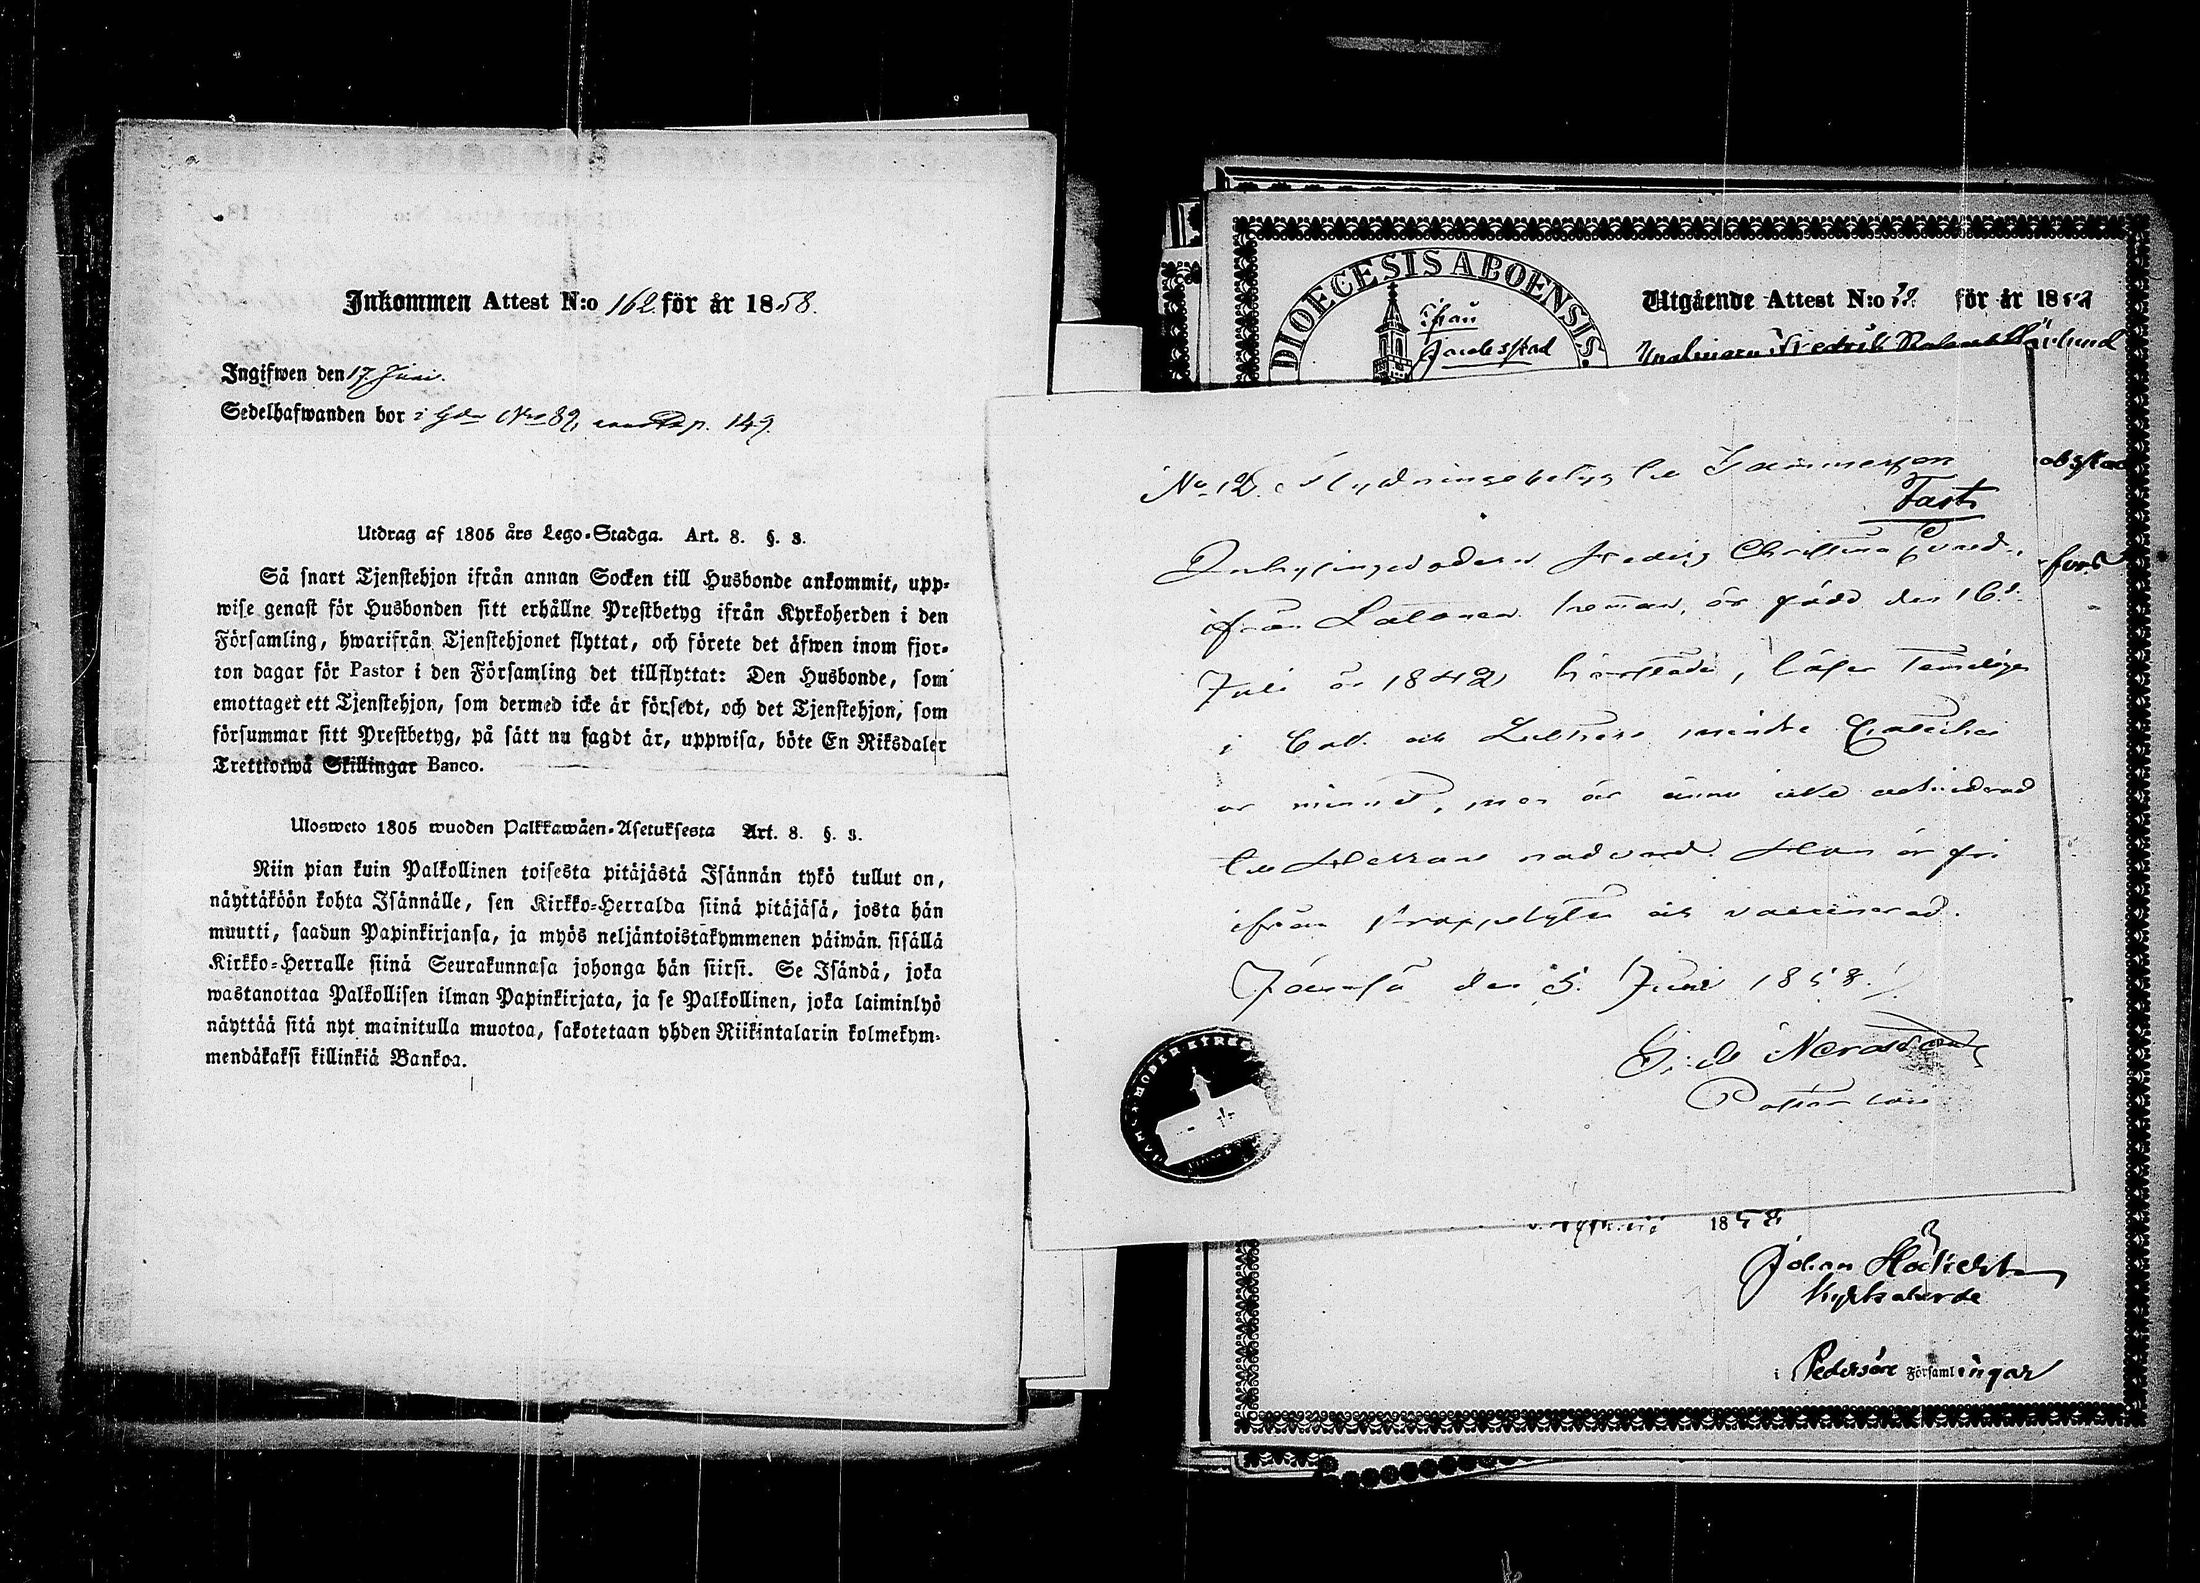 Inkommen Attest N:o 162 för år 1858.
Ingifwen den 17 Juni.
Sedelhafwanden bor i Gdn No 89, p. 149.
Utdrag af 1805 års Lego-Stadga. Art. 8. §. 3.
Så snart Tjenstehjon ifrån annan Socken till Husbonde ankommit, upp-
wise genast för Husbonden sitt erhållne Prestbetyg ifrån Kyrkoherden i den
Församling, hwarifrån Tjenstehjonet flyttat, och förete det äfwen inom fjor-
ton dagar för Pastor i den Församling det tillflyttat: Den Husbonde, som
emottager ett Tjenstehjon, som dermed icke är försedt, och det Tjenstehjon, som
försummar sitt Prestbetyg, på sätt nu sagdt är, uppwisa, böte En Riksdaler
Trettiotwå Skillingar Banco.
Ulosweto 1805 wuoden Palkkawäen-Asetuksesta Art. 8. §. 3.
Niin pian kuin Palkollinen toisesta pitäjästä Isännän tykö tullut on,
näyttäköön kohta Isännälle, sen Kirkko-Herralda siinä pitäjäsä, josta hän
muutti, saadun Papinkirjansa, ja myös neljäntoistakymmenen päiwän sisällä
Kirkko-Herralle siinä Seurakunnasa johonga hän siirsi. Se Isändä, joka
wastanottaa Palkollisen ilman Papinkirjata, ja se Palkollinen, joka laiminlyö
näyttää sitä nyt mainitulla muotoa, sakotetaan yhden Riikintalarin kolmekym-
mendäkaksi killinkiä Bankoa.
DIOECESIS ABOENSIS.
ifrån
Jacobstad
Utgående Attest N:o för år 18
Ynglingen Fredrik
No 12. Flyttningsbetyg till Tammerfors
Inhysingsdottern Hedvig Christina
ifrån hemman, är född den 16de
Juli år 1842, härstädes, läser
i bok och Lutheri mindre Cateches
ur minnet, men är ännu icke admitterad
till Herrans nattvard. Hon är fri
ifrån kroppslyten och vaccinerad.
Jämsä den 5. Juni 1858.
Pastor loci
1858
Johan
Kyrkoherde
i Pedersöre Församlingar